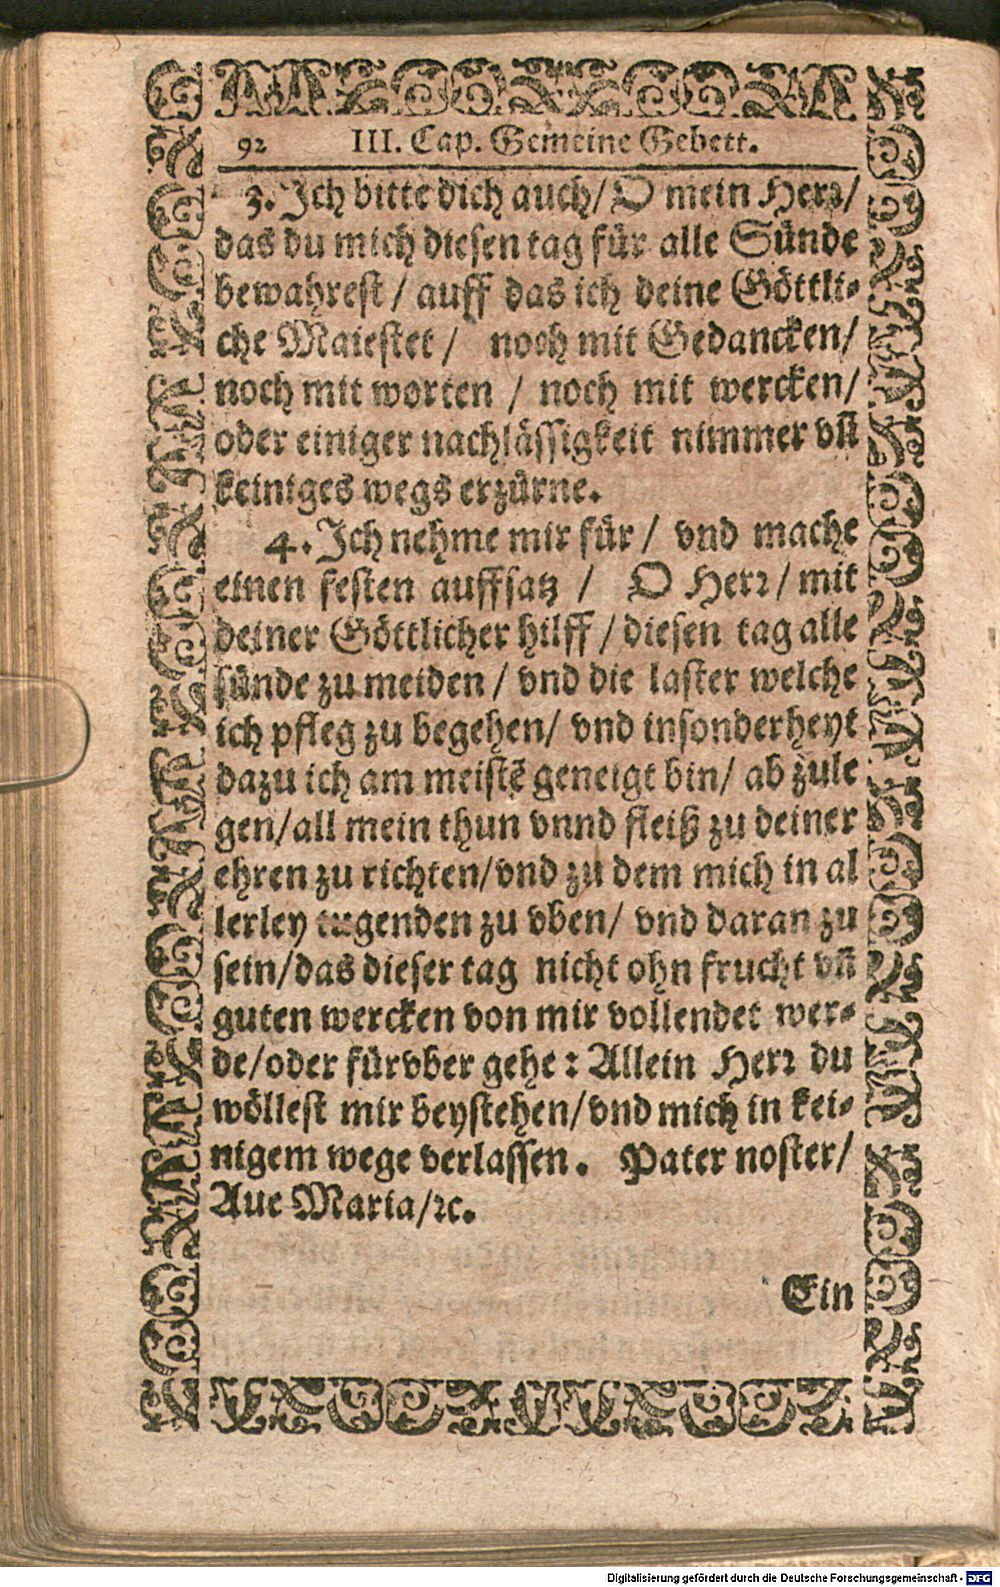 92 III. Cap. Gemeine Gebett.
3. Ich bitte dich auch/ O mein Herꝛ/
das du mich diesen tag für alle Sünde
bewahrest / auff das ich deine Göttli-
che Maiestet / noch mit Gedancken/
noch mit worten / noch mit wercken/
oder einiger nachlässigkeit nimmer vñ
keiniges wegs erzürne.
4. Ich nehme mir für / vnd mache
einen festen auffsatz / O Herꝛ / mit
deiner Göttlicher hilff / diesen tag alle
sünde zu meiden / vnd die laster welche
ich pfleg zu begehen/ vnd insonderheyt
dazu ich am meistẽ geneigt bin/ ab zule
gen/all mein thun vnnd fleiß zu deiner
ehren zu richten/vnd zu dem mich in al
lerley tugenden zu vben/ vnd daran zu
sein/das dieser tag nicht ohn frucht vñ
guten wercken von mir vollendet wer-
de/oder fürvber gehe: Allein Herꝛ du
wöllest mir beystehen/vnd mich in kei-
nigem wege verlassen. Pater noster/
Aue Maria/ꝛc.
Ein
Digitalisierung gefördert durch die Deutsche Forschungsgemeinschaft - DFG